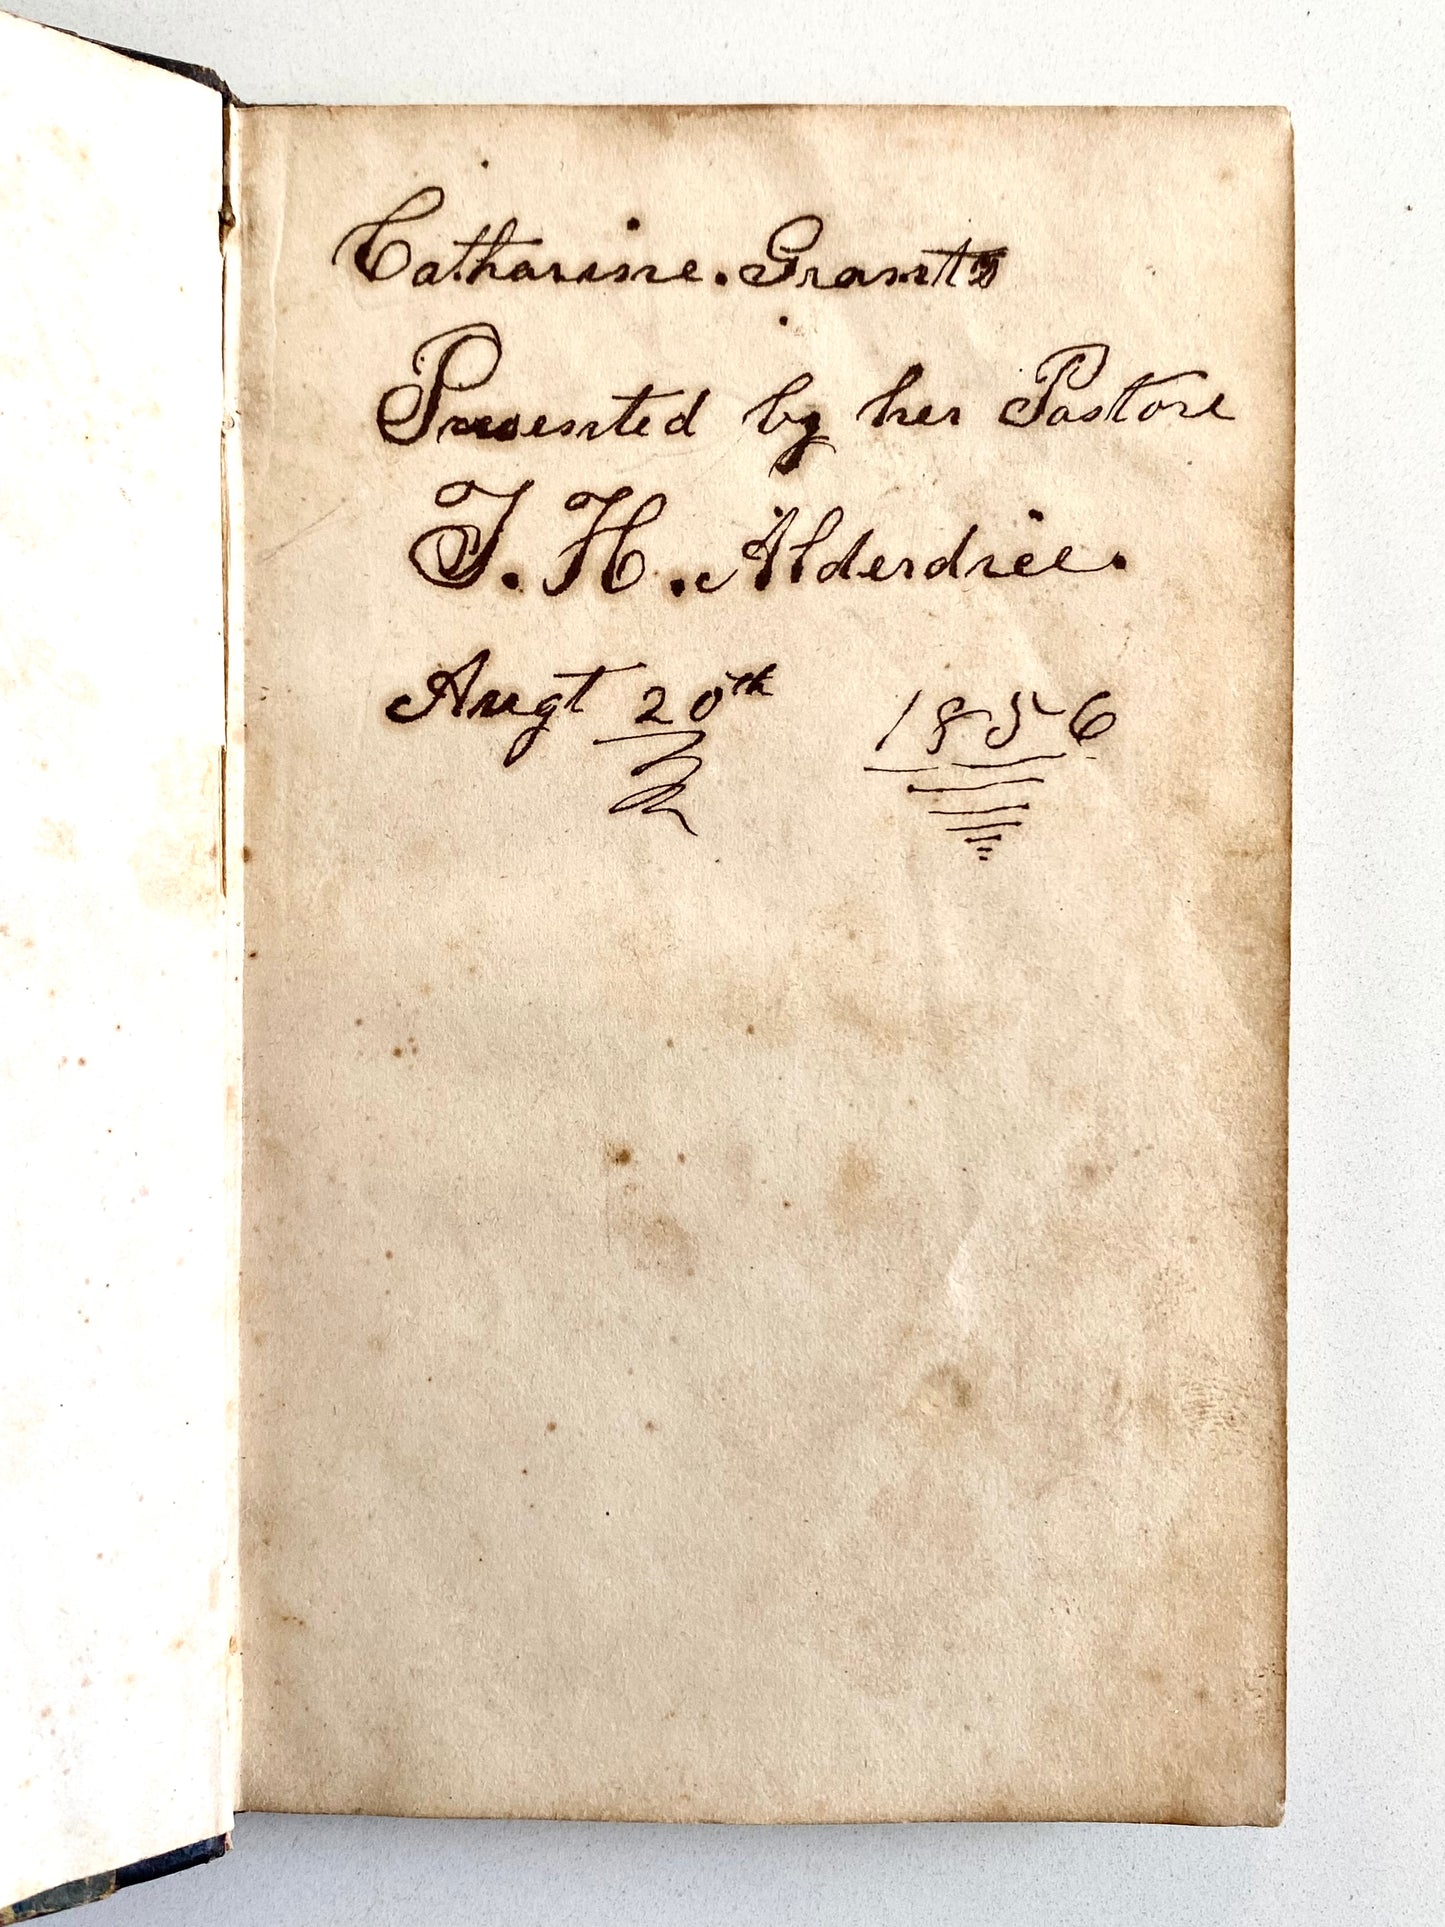 Catharine. Grants
Presented by her Pastore
T. H. Alderdice.
Augt 20th 1856